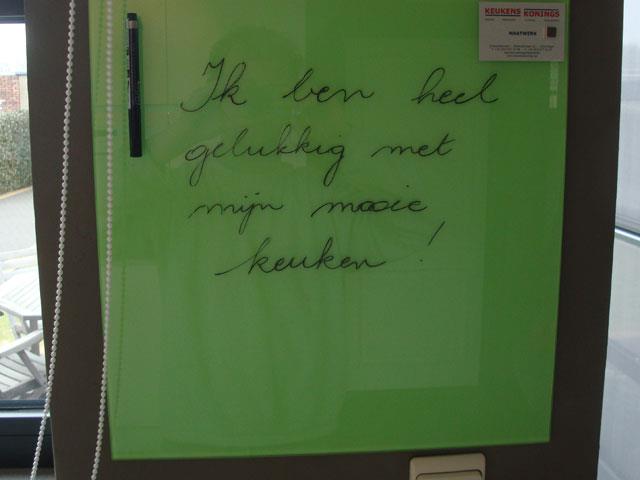 KEUKENS KONINGS
MAATWERK
Ik ben heel
gelukkig met
mijn mooie
keuken!